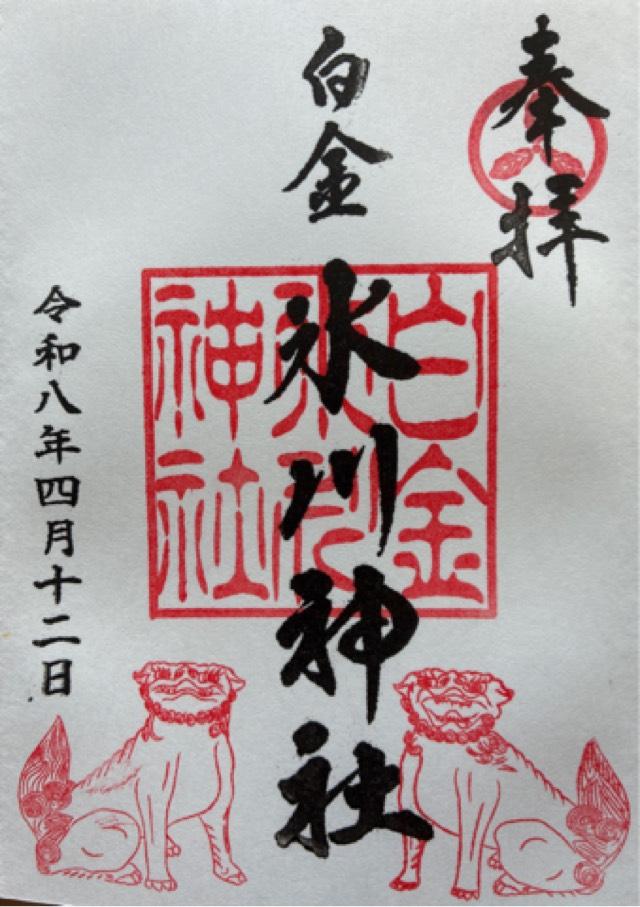 奉拝
白金
氷川神社
白金
氷川
神社
令和八年四月十二日